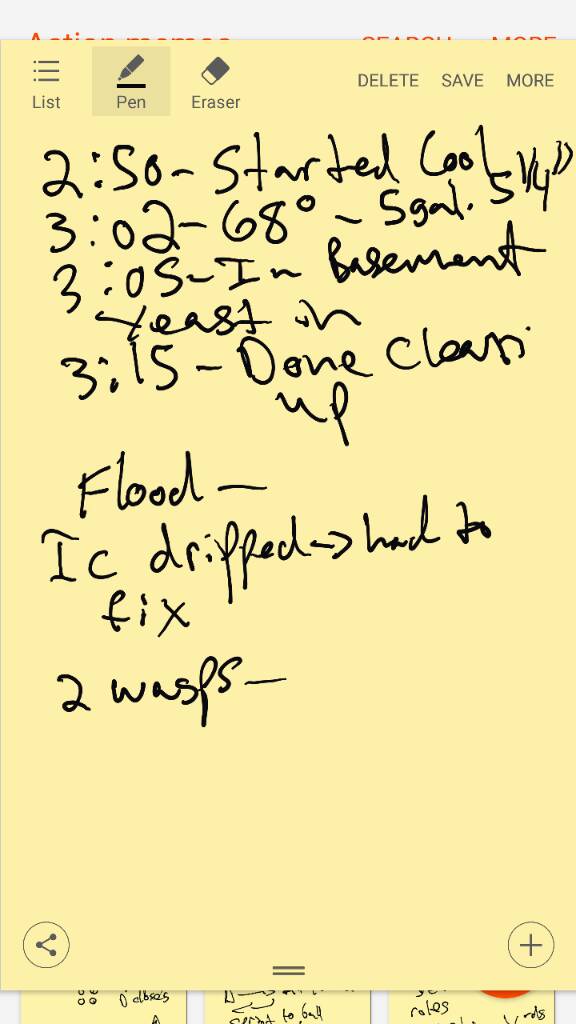 Action memos SEARCH MORE
List Pen Eraser DELETE SAVE MORE
2:50- Started Cool
3:02-68° - 5gal. 5 1/4"
3:05-In Basement
Yeast in
3:15-Done Clean
up
Flood-
Ic dripped -> had to
fix
2 wasps-
script to ball
roles